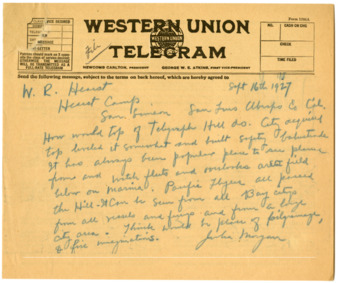 WESTERN UNION
WESTERN UNION
TELEGRAM
NEWCOMB CARLTON, PRESIDENT GEORGE W. E. ATKINS, FIRST VICE-PRESIDENT
CHECK
TIME FILED
Send the following message, subject to the terms on back hereof, which are hereby agreed to
Sept 16th 1927
W. R. Hearst
Hearst Camp.
San Simeon San Luis Obispo Co Cal.
How would top of Telegraph Hill do. City acquired
top leveled it somewhat and built safety balustrade
It has always been popular place to see planes
from and watch fleets and overlooks airfield
below on Marina. Pacific flyers all passed
the Hill. It can be seen from all Bay cities
from all vessels and ferrys and from a large
city area. Think would be place of pilgrimage
& fire imaginations. Julia Morgan